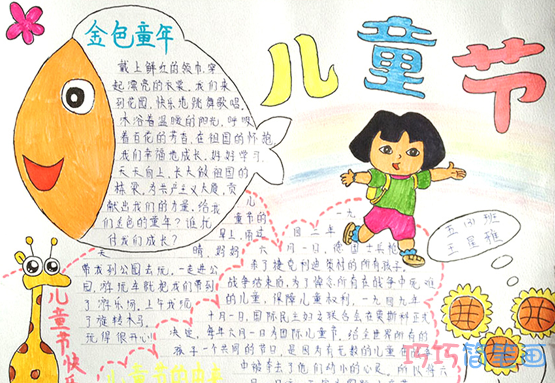 金色童年
儿童节
戴上鲜红的领巾,穿
起漂亮的衣裳,我们来
到花园,快乐也跳舞歌唱,
沐浴着温暖的阳光,呼吸
着百花的芳香,在祖国的怀抱
我们幸福地成长,好好学习,
天天向上,长大做祖国的
栋梁,为共产主义大厦,贡
献出我们的力量,给我
们金色的童年?谁化
付我们成长?
儿童节快乐
儿童节的
早上
天 晴,妈妈
带我到公园去玩,一走进公
园,游玩车就把我们带到
了游乐场,上午我玩
了旋转木马
玩得很开心
一九
二年
六月一日,德国
杀了捷克利迪策村的所有孩子,
战争结束后,为了悼念所有在战争中死难
的儿童,保障儿童权利,一九四九
十月一日,国际民主妇女联合会在莫斯科正式
决定,每年六月一日为国际儿童节,给全世界所有的
孩子一个共同的节日,
儿童节的由来
五(1)班
巧巧简笔画